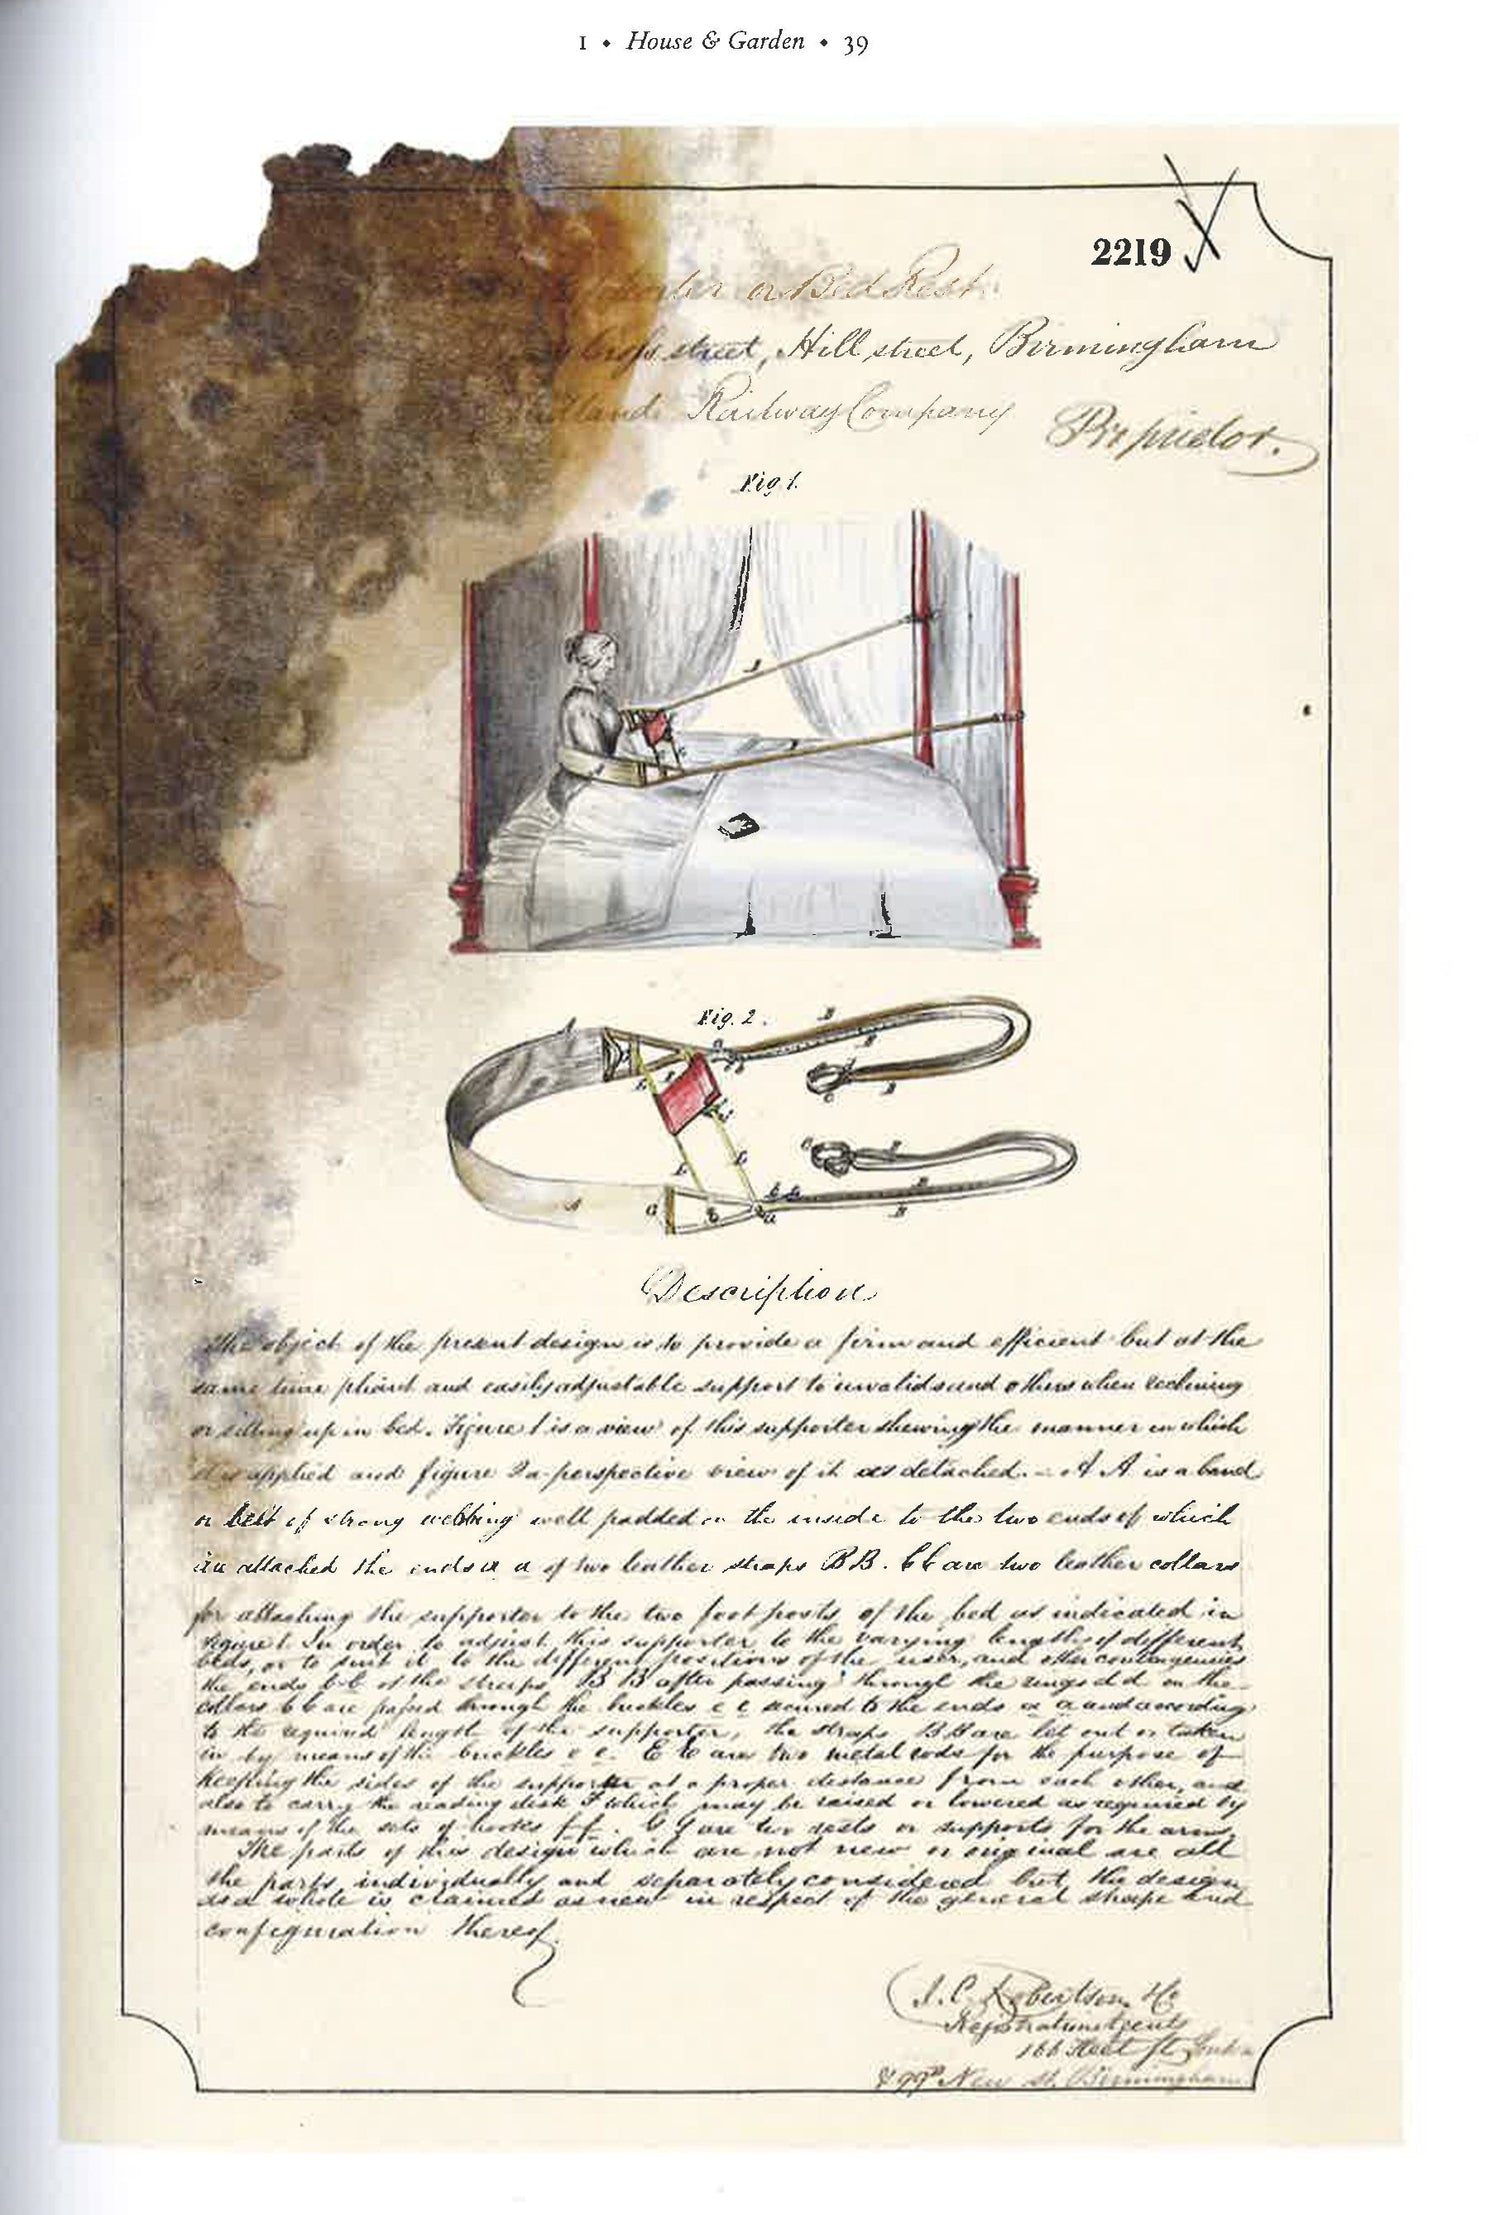 1 ◆ House & Garden ◆ 39
2219
or Bed Rest
street, Hill street, Birmingham
Railway Company
Proprietor.
Fig 1.
B
Fig. 2.
B
B
B
C
E
E
A
G
B
B
B
a
Description
The object of the present design is to provide a firm and efficient but at the
same time pliant and easily adjustable support to invalids and others when reclining
or sitting up in bed. Figure 1 is a view of this supporter shewing the manner in which
it is applied and figure 2 a perspective view of it as detached. – A A is a band
or belt of strong webbing well padded on the inside to the two ends of which
are attached the ends a a of two leather straps B B. C C are two leather collars
for attaching the supporter to the two foot posts of the bed as indicated in
figure 1. In order to adjust this supporter to the varying lengths of different
beds, or to suit it to the different positions of the user, and other contingencies
the ends b b of the straps B B after passing through the rings d d on the
collars C C are passed through the buckles e e secured to the ends a a and according
to the required length of the supporter, the straps B B are let out or taken
in by means of the buckles e e. E E are two metal rods for the purpose of
keeping the sides of the supporter at a proper distance from each other, and
also to carry the reading desk F which may be raised or lowered as required by
means of the sets of hooks f f. G G are two rests or supports for the arms.
The parts of this design which are not new or original are all
the parts individually and separately considered but the design
as a whole is claimed as new in respect of the general shape and
configuration thereof.
J. C. Robertson & Co
Registration Agents
166 Fleet St. London
& 99 New St. Birmingham